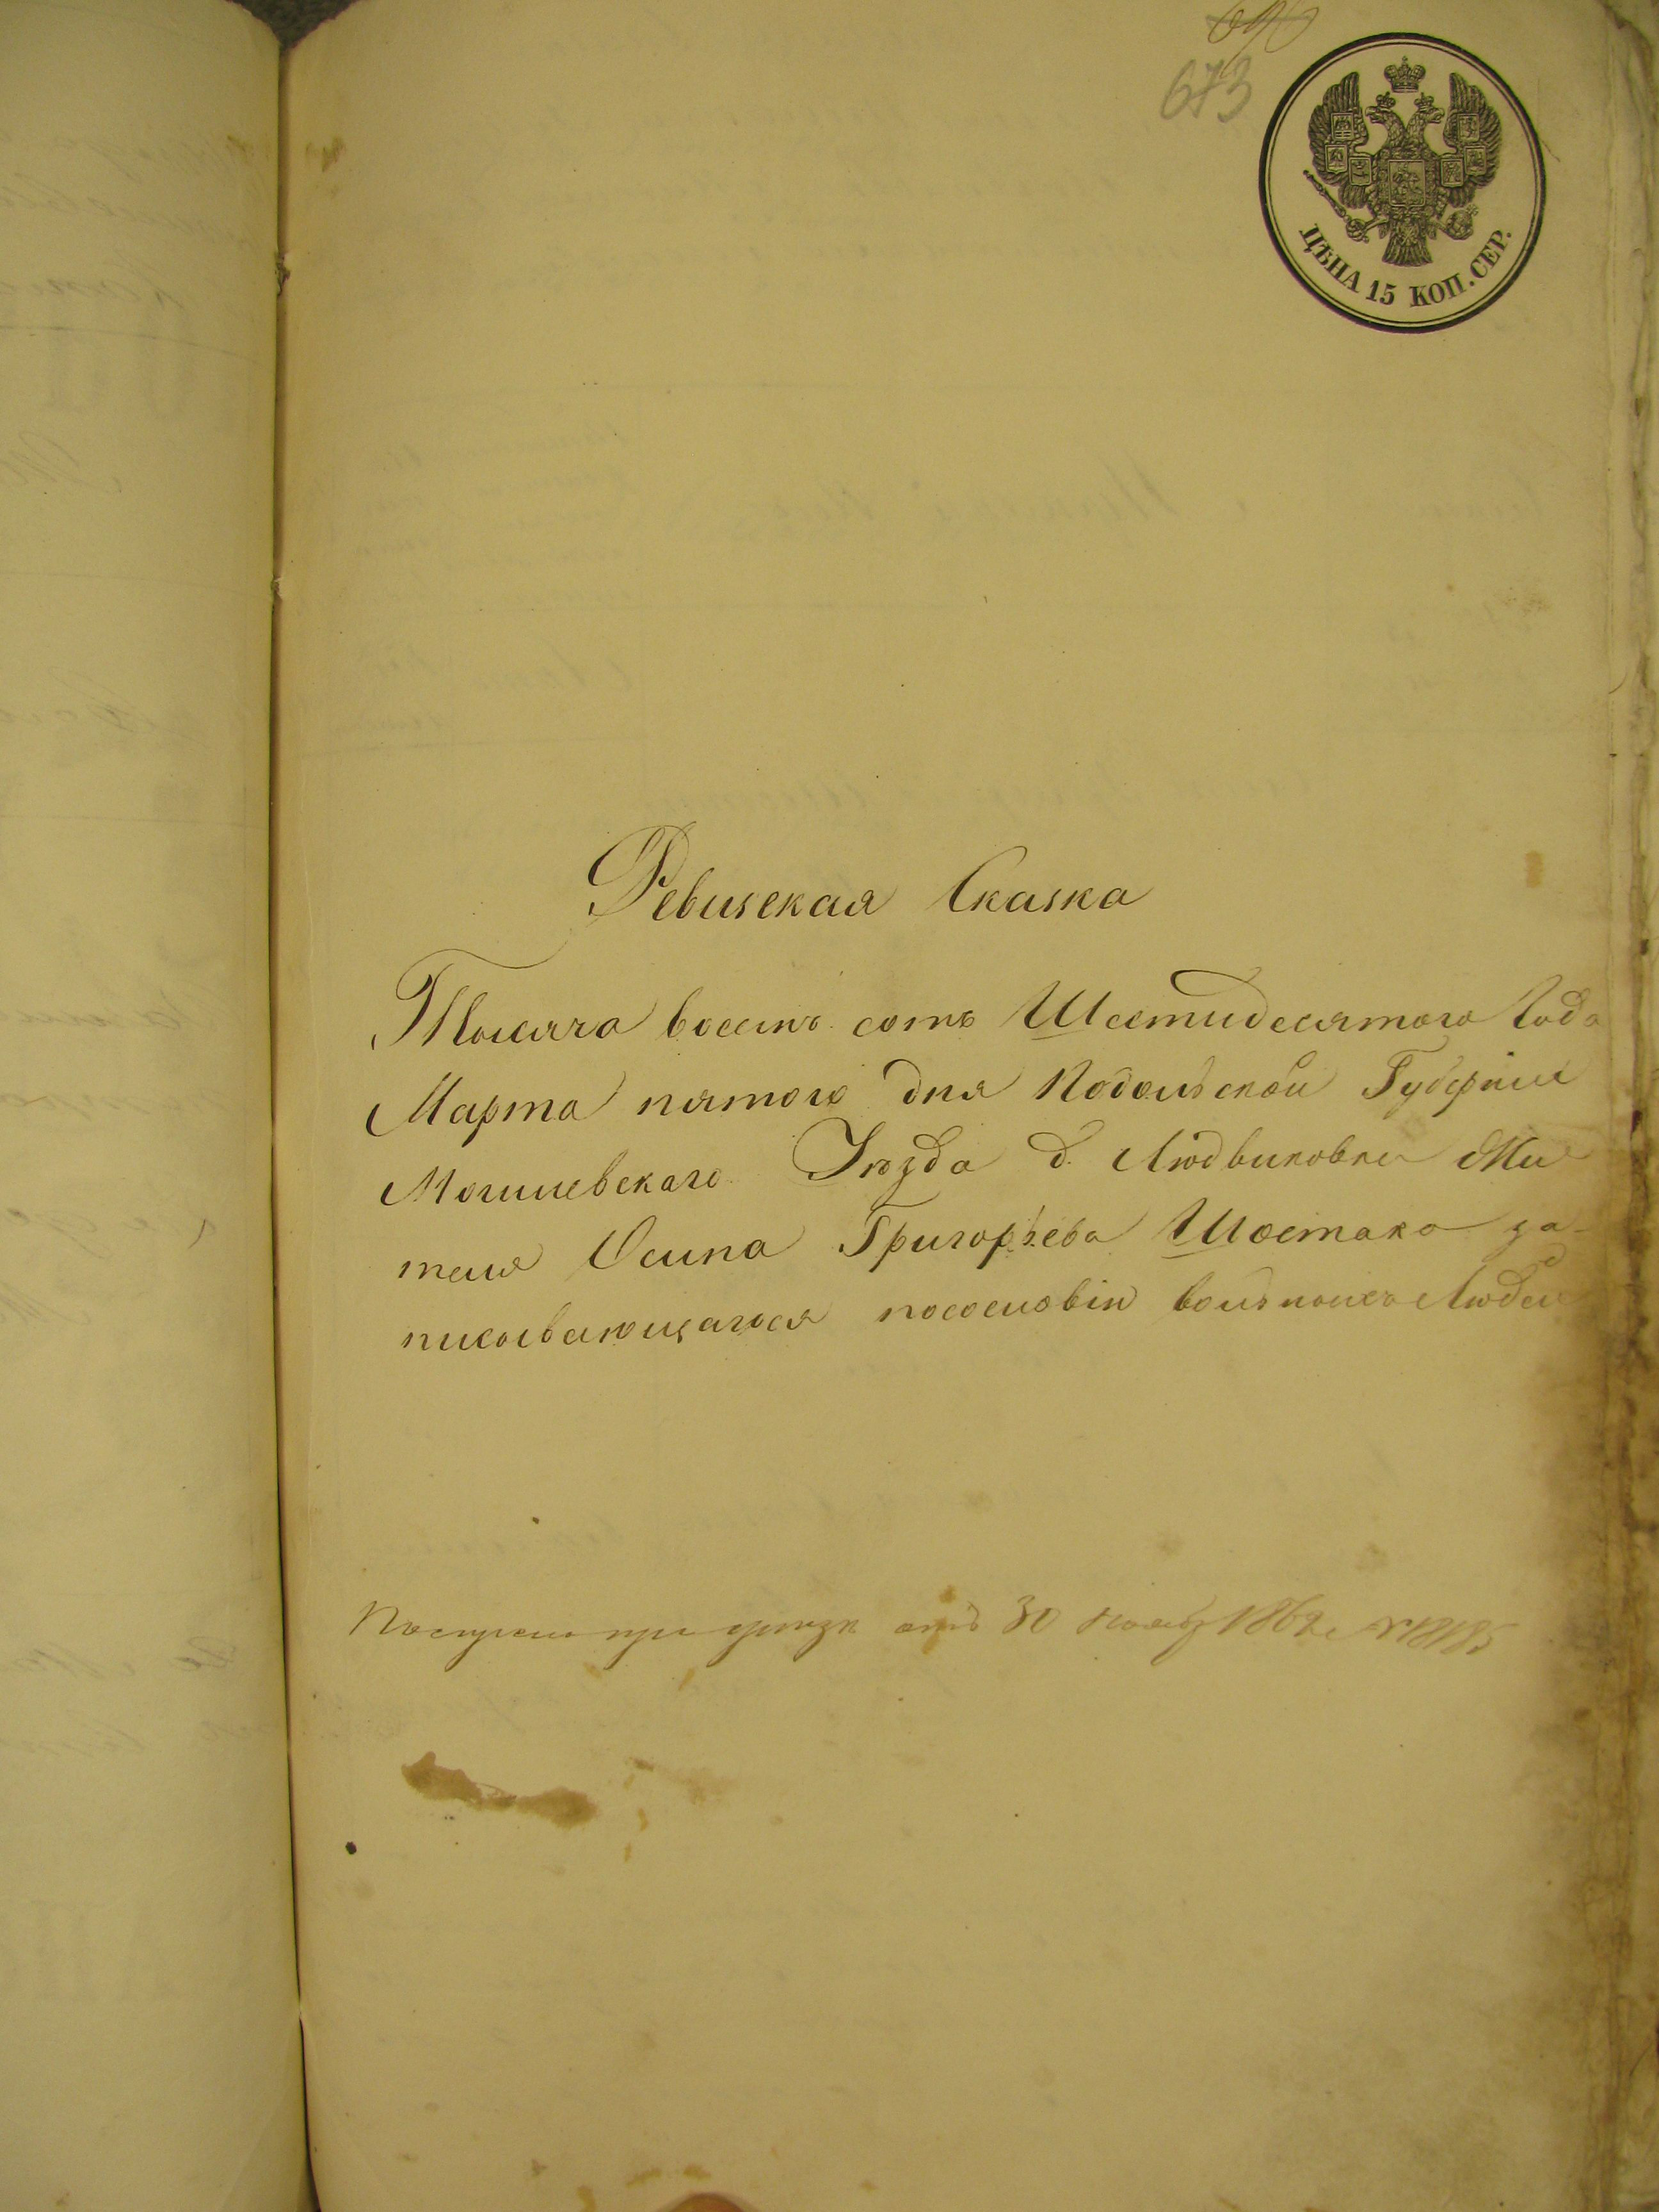 673
ЦѢНА 15 КОП. СЕР.
Ревизская Сказка
Тысяча восемь сотъ Шестидесятого Года
Марта пятого дня Подольской Губерніи
Могилевского Уѣзда д. Людвиковки Жи
теля Осипа Григорьева Шостака за-
писывающагося посословію вольныхъ Людей
при отъ 30 Нояб 1862 г №18185